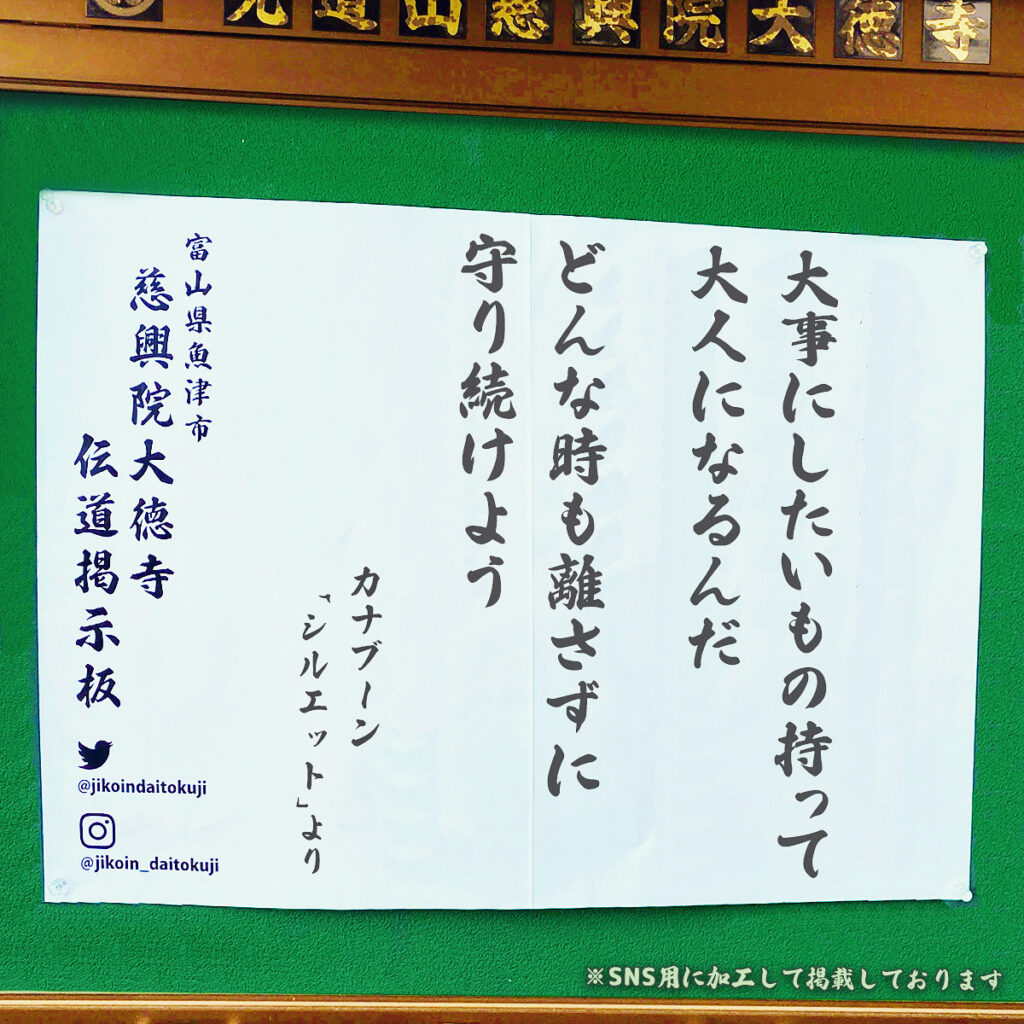 光道山慈興院大徳寺
大事にしたいもの持って
大人になるんだ
どんな時も離さずに
守り続けよう
カナブーン
「シルエット」より
富山県魚津市
慈興院大徳寺
伝道掲示板
@jikoindaitokuji
@jikoin_daitokuji
※SNS用に加工して掲載しております